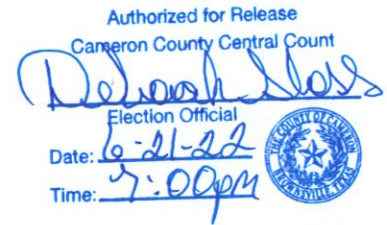 Authorized for Release
Cameron County Central Count
Deborah
Election Official
Date: 6-21-22
Time: 7:00pm
THE COUNTY OF CAMERON
BROWNSVILLE, TEXAS